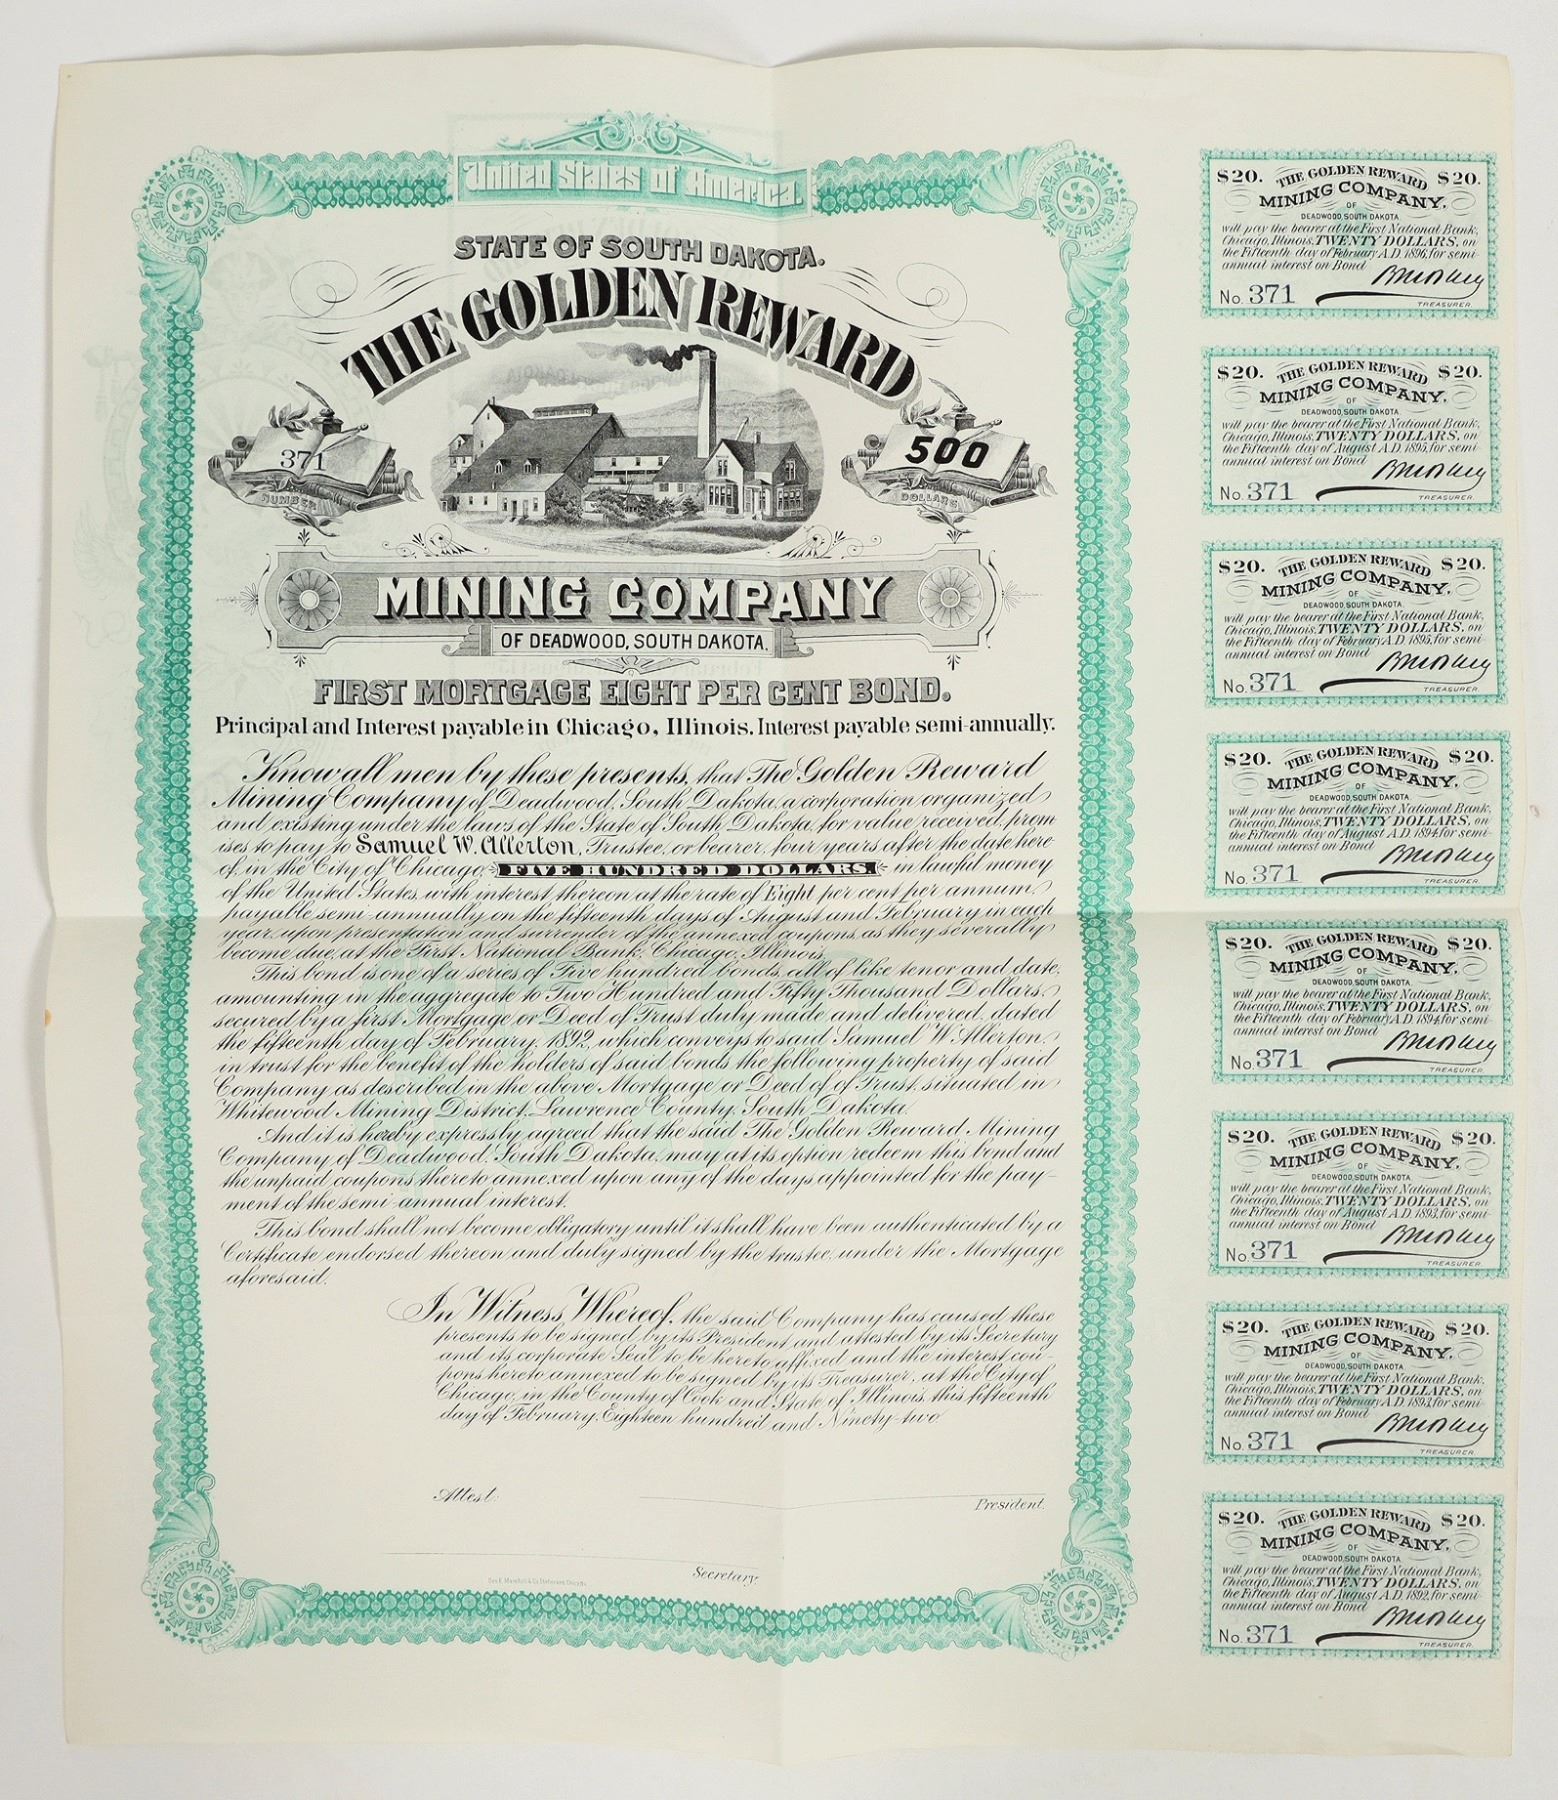 United States of America.
STATE OF SOUTH DAKOTA.
THE GOLDEN REWARD
371
NUMBER
500
DOLLARS
MINING COMPANY
OF DEADWOOD, SOUTH DAKOTA.
FIRST MORTGAGE EIGHT PER CENT BOND.
Principal and Interest payable in Chicago, Illinois. Interest payable semi-annually.
Know all men by these presents, that The Golden Reward
Mining Company of Deadwood, South Dakota, a corporation organized
and existing under the laws of the State of South Dakota, for value received, prom
ises to pay to Samuel W. Allerton, Trustee, or bearer, four years after the date here
of, in the City of Chicago, FIVE HUNDRED DOLLARS. in lawful money
of the United States, with interest thereon at the rate of Eight per cent per annum,
payable semi-annually on the fifteenth days of August and February in each
year, upon presentation and surrender of the annexed coupons, as they severally
become due, at the First National Bank, Chicago, Illinois.
This bond is one of a series of Five hundred bonds, all of like tenor and date,
amounting in the aggregate to Two Hundred and Fifty Thousand Dollars,
secured by a first Mortgage or Deed of Trust duly made and delivered, dated
the fifteenth day of February, 1892, which conveys to said Samuel W. Allerton,
in trust for the benefit of the holders of said bonds the following property of said
Company as described in the above Mortgage or Deed of of Trust, situated in
Whitewood Mining District, Lawrence County, South Dakota.
And it is hereby expressly agreed that the said The Golden Reward Mining
Company of Deadwood, South Dakota, may at its option redeem this bond and
the unpaid coupons thereto annexed upon any of the days appointed for the pay-
ment of the semi-annual interest.
This bond shall not become obligatory until it shall have been authenticated by a
Certificate endorsed thereon and duly signed by the trustee, under the Mortgage
aforesaid.
In Witness Whereof, the said Company has caused these
presents to be signed by its President and attested by its Secretary
and its corporate Seal to be hereto affixed and the interest cou-
pons hereto annexed to be signed by its Treasurer, at the City of
Chicago, in the County of Cook and State of Illinois, this fifteenth
day of February, Eighteen hundred and Ninety-two
Attest:
President.
Secretary.
$20. THE GOLDEN REWARD $20.
MINING COMPANY,
OF
DEADWOOD, SOUTH DAKOTA
will pay the bearer at the First National Bank,
Chicago, Illinois, TWENTY DOLLARS, on
the Fifteenth day of February A.D. 1896, for semi-
annual interest on Bond
No. 371
TREASURER.
$20. THE GOLDEN REWARD $20.
MINING COMPANY,
OF
DEADWOOD, SOUTH DAKOTA
will pay the bearer at the First National Bank,
Chicago, Illinois, TWENTY DOLLARS, on
the Fifteenth day of August A.D. 1895, for semi-
annual interest on Bond
No. 371
TREASURER.
$20. THE GOLDEN REWARD $20.
MINING COMPANY,
OF
DEADWOOD, SOUTH DAKOTA.
will pay the bearer at the First National Bank,
Chicago, Illinois, TWENTY DOLLARS, on
the Fifteenth day of February A.D. 1895, for semi-
annual interest on Bond
No. 371
TREASURER.
$20. THE GOLDEN REWARD $20.
MINING COMPANY,
OF
DEADWOOD, SOUTH DAKOTA
will pay the bearer at the First National Bank,
Chicago, Illinois, TWENTY DOLLARS, on
the Fifteenth day of August A.D. 1894, for semi-
annual interest on Bond
No. 371
TREASURER.
$20. THE GOLDEN REWARD $20.
MINING COMPANY,
OF
DEADWOOD, SOUTH DAKOTA.
will pay the bearer at the First National Bank,
Chicago, Illinois, TWENTY DOLLARS, on
the Fifteenth day of February A.D. 1894, for semi-
annual interest on Bond
No. 371
TREASURER.
$20. THE GOLDEN REWARD $20.
MINING COMPANY,
OF
DEADWOOD, SOUTH DAKOTA.
will pay the bearer at the First National Bank,
Chicago, Illinois, TWENTY DOLLARS, on
the Fifteenth day of August A.D. 1893, for semi-
annual interest on Bond
No. 371
TREASURER.
$20. THE GOLDEN REWARD $20.
MINING COMPANY,
OF
DEADWOOD, SOUTH DAKOTA
will pay the bearer at the First National Bank,
Chicago, Illinois, TWENTY DOLLARS, on
the Fifteenth day of February A.D. 1893, for semi-
annual interest on Bond
No. 371
TREASURER.
$20. THE GOLDEN REWARD $20.
MINING COMPANY,
OF
DEADWOOD, SOUTH DAKOTA
will pay the bearer at the First National Bank,
Chicago, Illinois, TWENTY DOLLARS, on
the Fifteenth day of August A.D. 1892, for semi-
annual interest on Bond
No. 371
TREASURER.